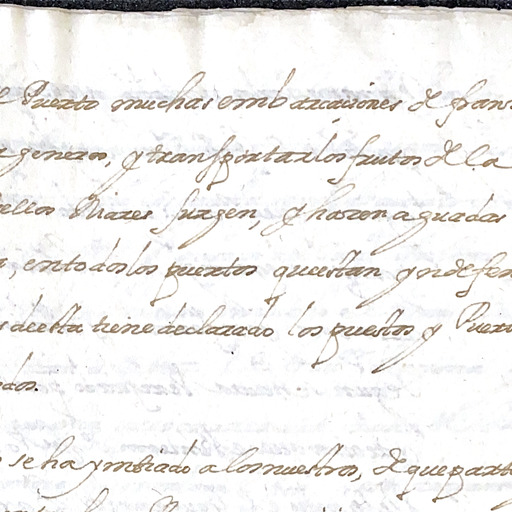 Puerto muchas embarcaciones de fran
generos, y transportar los frutos de la
Mares surgen, y hazen aguadas
, en todos los puertos que estan yndefen
desta tiene declarado los puestos y Puer
dos.
se ha ymbiado a los nuestros, de que part